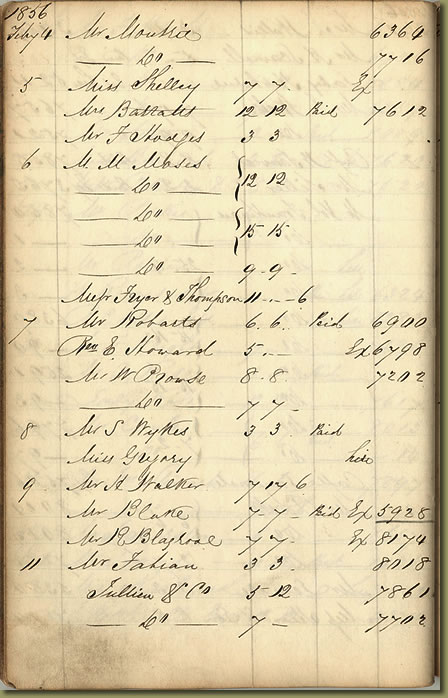 1856
Feby 4 Mr Monkis 6364
Do 7716
5 Miss Shelley 7 7 Ex
Mrs Battams 12 12 Paid 7612
Mr J Hodges 3 3
6 M. M. Moses
Do 12 12
Do
Do 15 15
Do 9 - 9 -
Messrs Fryer & Thompson 11 - - 6
7 Mr Robarts 6. 6. Paid 6900
Wm E Howard 5 - - Ex 6798
Mr W Prowse 8 - 8 7202
Do 7 7 -
8 Mr S Wykes 3 3 Paid
Miss Gregory hire
9 Mr A Walker 7 17 6
Mr Blake 7 - 7 - Paid Ex 5928
Mr R Blagrove 7 7 Ex 8174
11 Mr Fabian 3 3 8018
Jullien & Co 5 - 12 7861
Do 7 - 7702